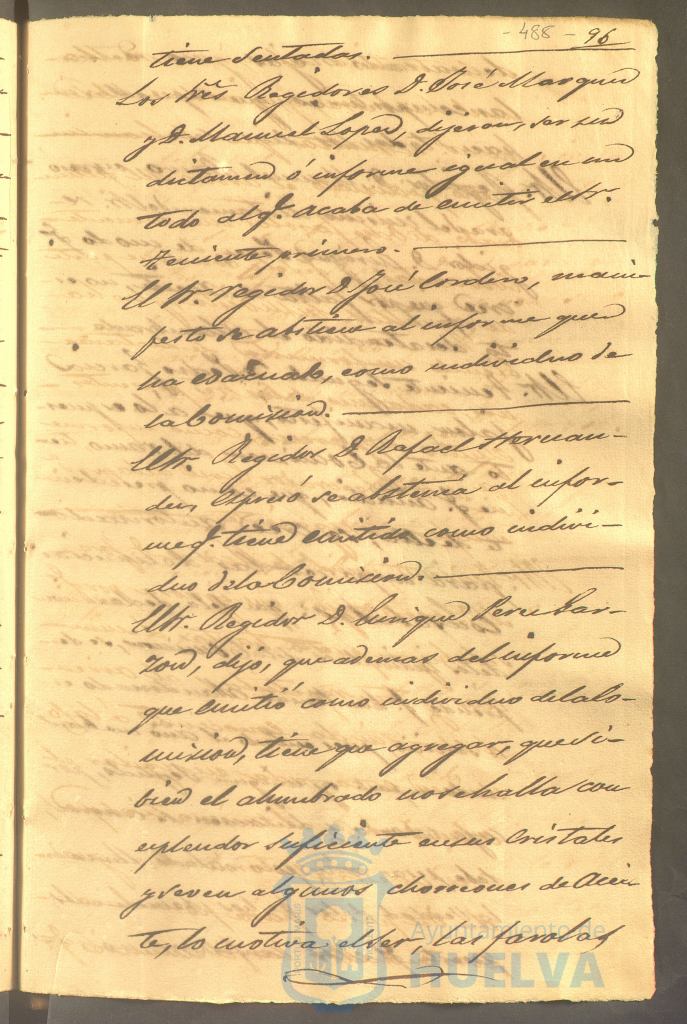 - 488 - 96
tiene sentadas.
Los Sres Regidores D. José Marquez
y D. Manuel Lopez, dijeron, ser su
dictamen ó informe igual en un
todo al q.e acaba de emitir el Sr.
Teniente primero.
El Sr. regidor D. José Cordero, mani-
festó se abstiene al informe que
ha evacuado, como individuo de
la Comision.
El Sr. Regidor D. Rafael Hernan-
dez, espresó se abstenia al infor-
me q.e tiene emitido como indivi-
duo de la Comision.
El Sr. Regidor D. Enrique Perez Gar-
zon, dijo, que ademas del informe
que emitió como individuo de la Co-
mision, tiene que agregar, que si
bien el alumbrado no se halla con
esplendor suficiente en sus Cristales
y se ven algunos chorreones de Acei-
te, lo motiva el ser las farolas
Ayuntamiento de
HUELVA